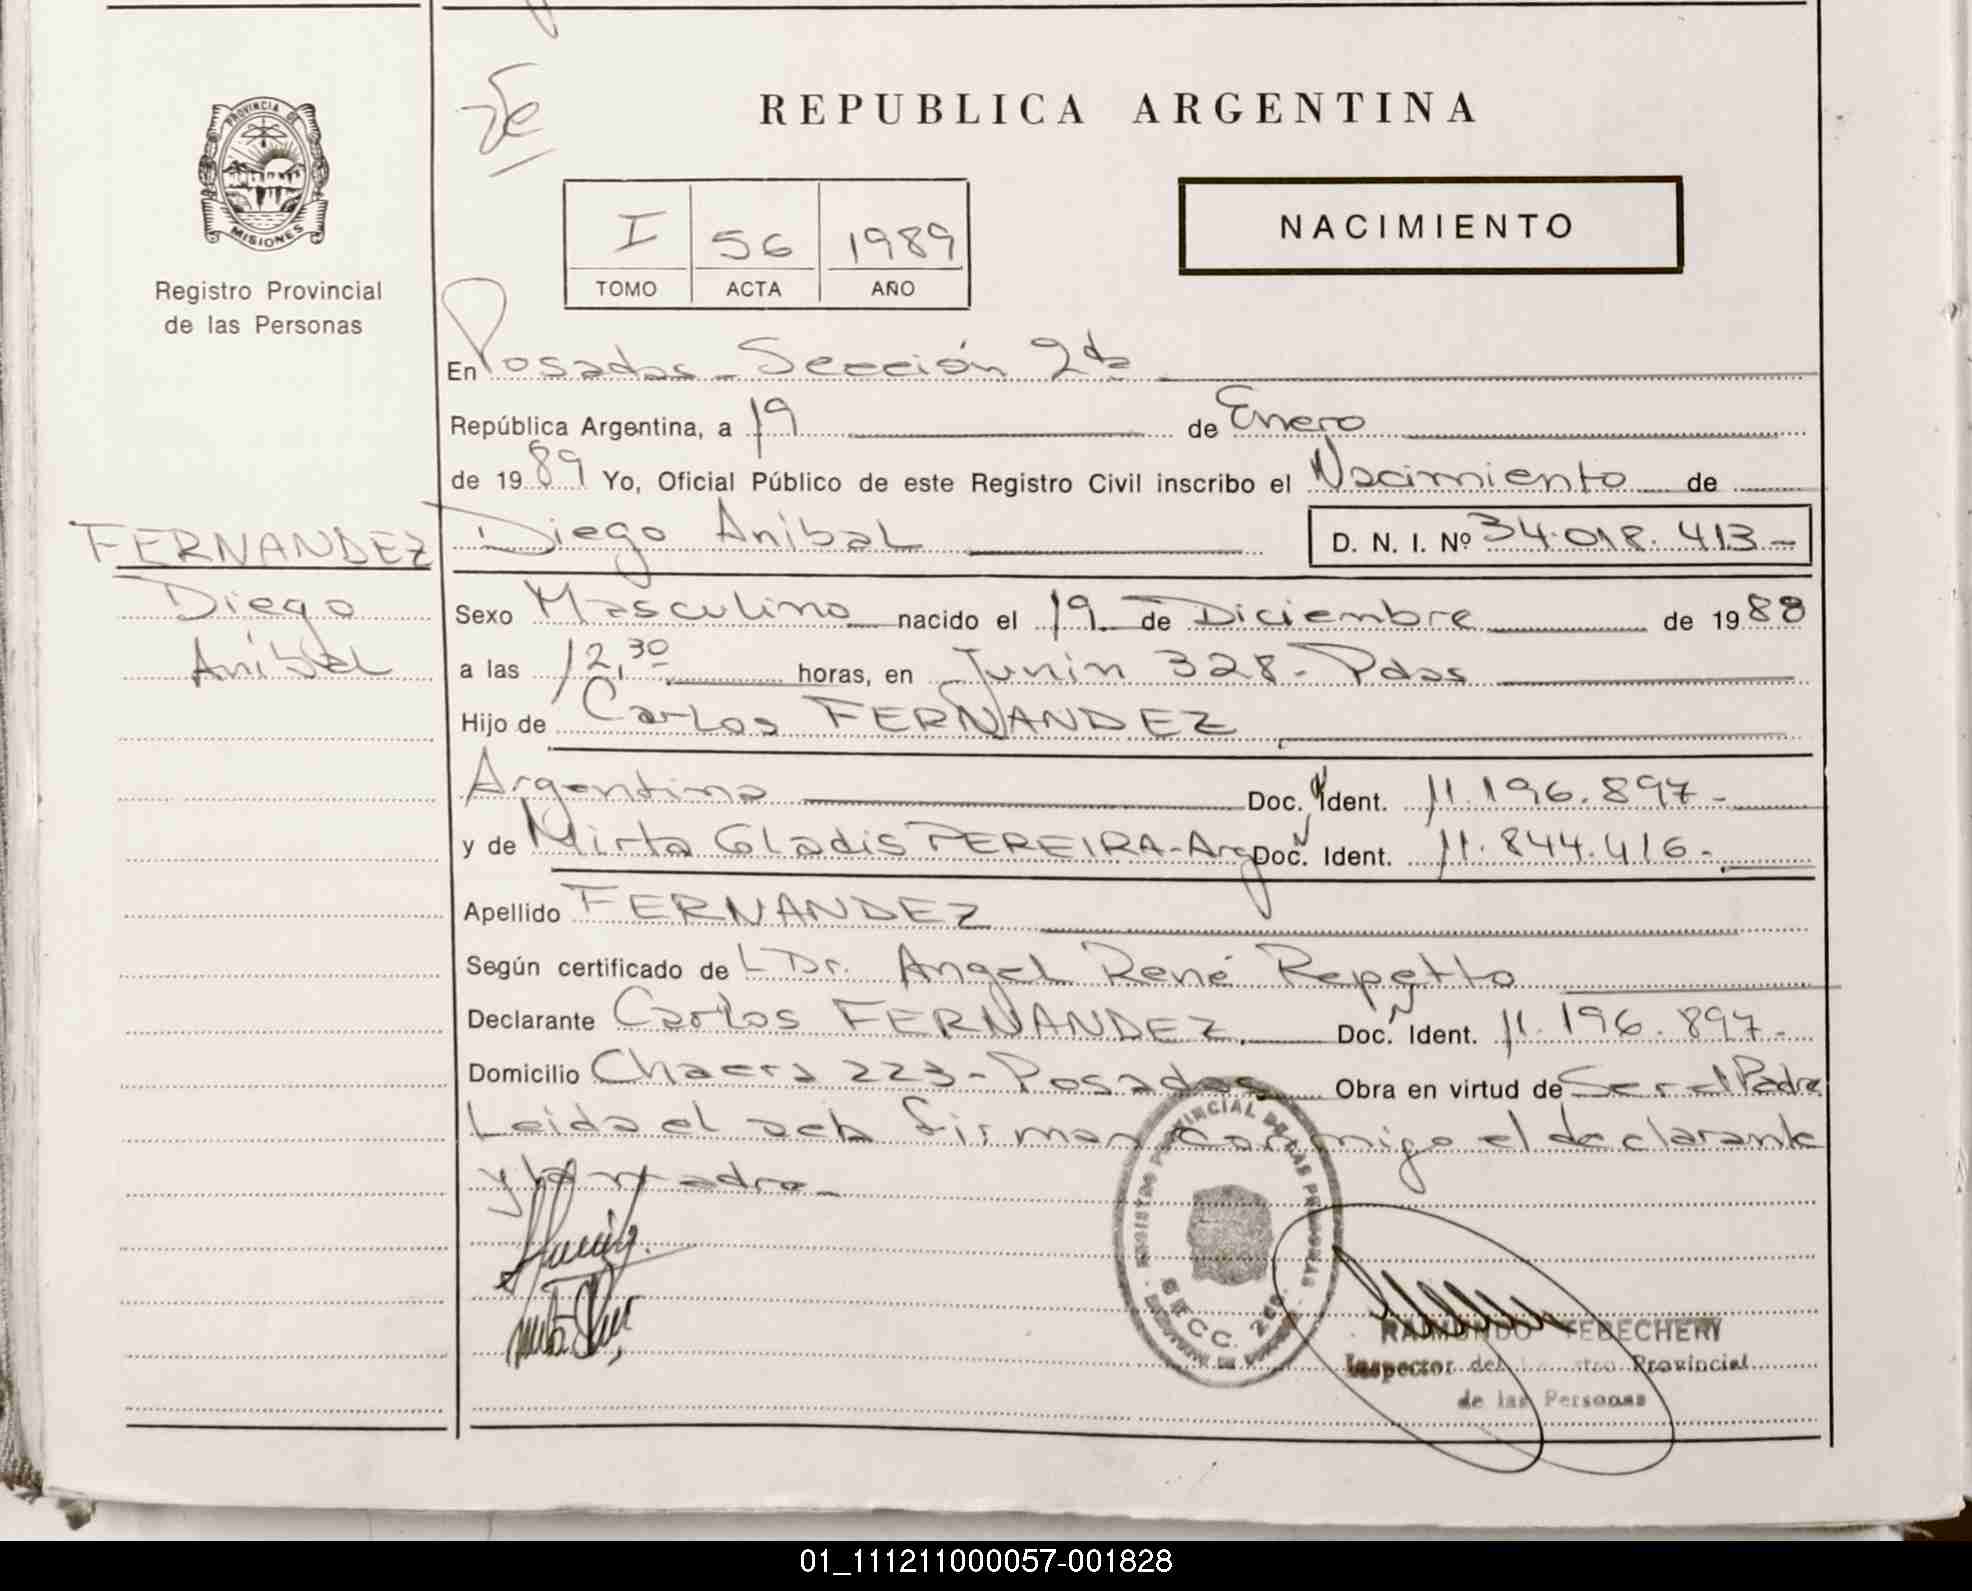 REPUBLICA ARGENTINA
PROVINCIA DE
MISIONES
Registro Provincial
de las Personas
I 56 1989
TOMO ACTA AÑO
NACIMIENTO
En Posadas - Sección 2da
República Argentina, a 19 de Enero
de 1989 Yo, Oficial Público de este Registro Civil inscribo el Nacimiento de
FERNANDEZ
Diego
Anibal
Diego Anibal D. N. I. Nº 34.018.413-
Sexo Masculino nacido el 19 de Diciembre de 1988
a las 12,30 horas, en Junin 328 - Pdas
Hijo de Carlos FERNANDEZ
Argentina Doc. Ident. 11.196.897-
y de Mirta Gladis PEREIRA - Arg Doc. Ident. 11.844.416-
Apellido FERNANDEZ
Según certificado del Dr. Angel René Repetto
Declarante Carlos FERNANDEZ Doc. Ident. 11.196.897-
Domicilio Chacra 223 - Posadas Obra en virtud de Ser el Padre
Leida el acta firman conmigo el declarante
y la madre -
SECC. 2da
RAIMUNDO
Inspector del Provincial
de las Personas
01_111211000057-001828